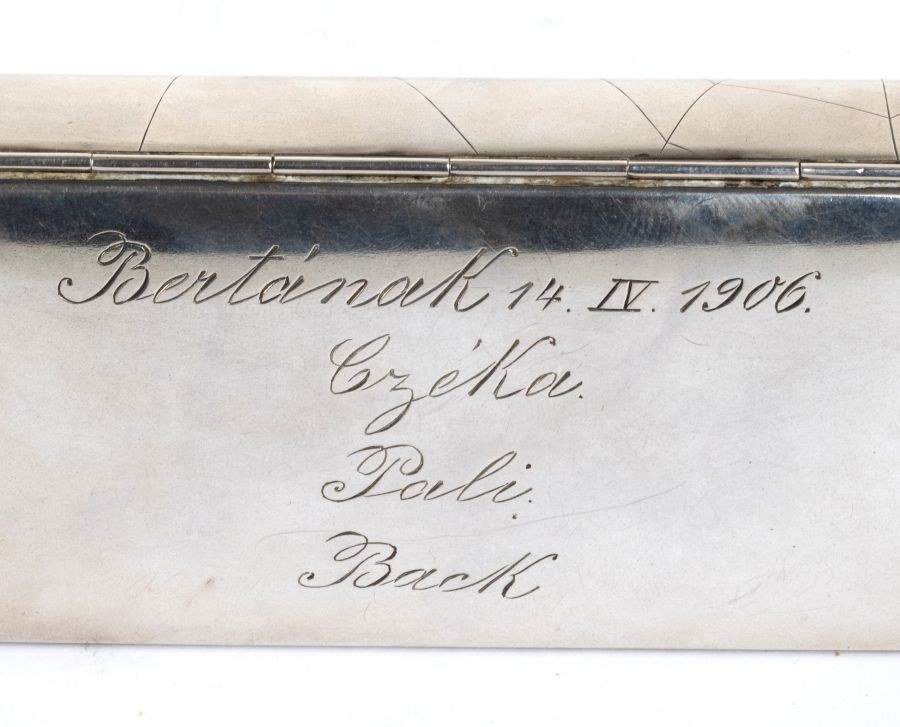 Bertának 14. IV. 1906.
Czéka.
Pali.
Back